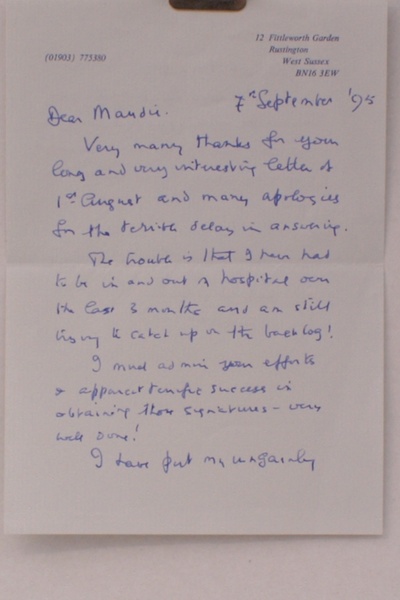 12 Fittleworth Garden
Rustington
(01903) 775380
West Sussex
BN16 3EW
7th September '95
Dear Maudie.
Very many thanks for your
long and very interesting letter of
1st August and many apologies
for the terrible delay in answering.
The trouble is that I have had
to be in and out of hospital over
the last 3 months and am still
trying to catch up on the backlog!
I must admire your efforts
& apparent terrific success in
obtaining those signatures - very
well done!
I have put my ungainly